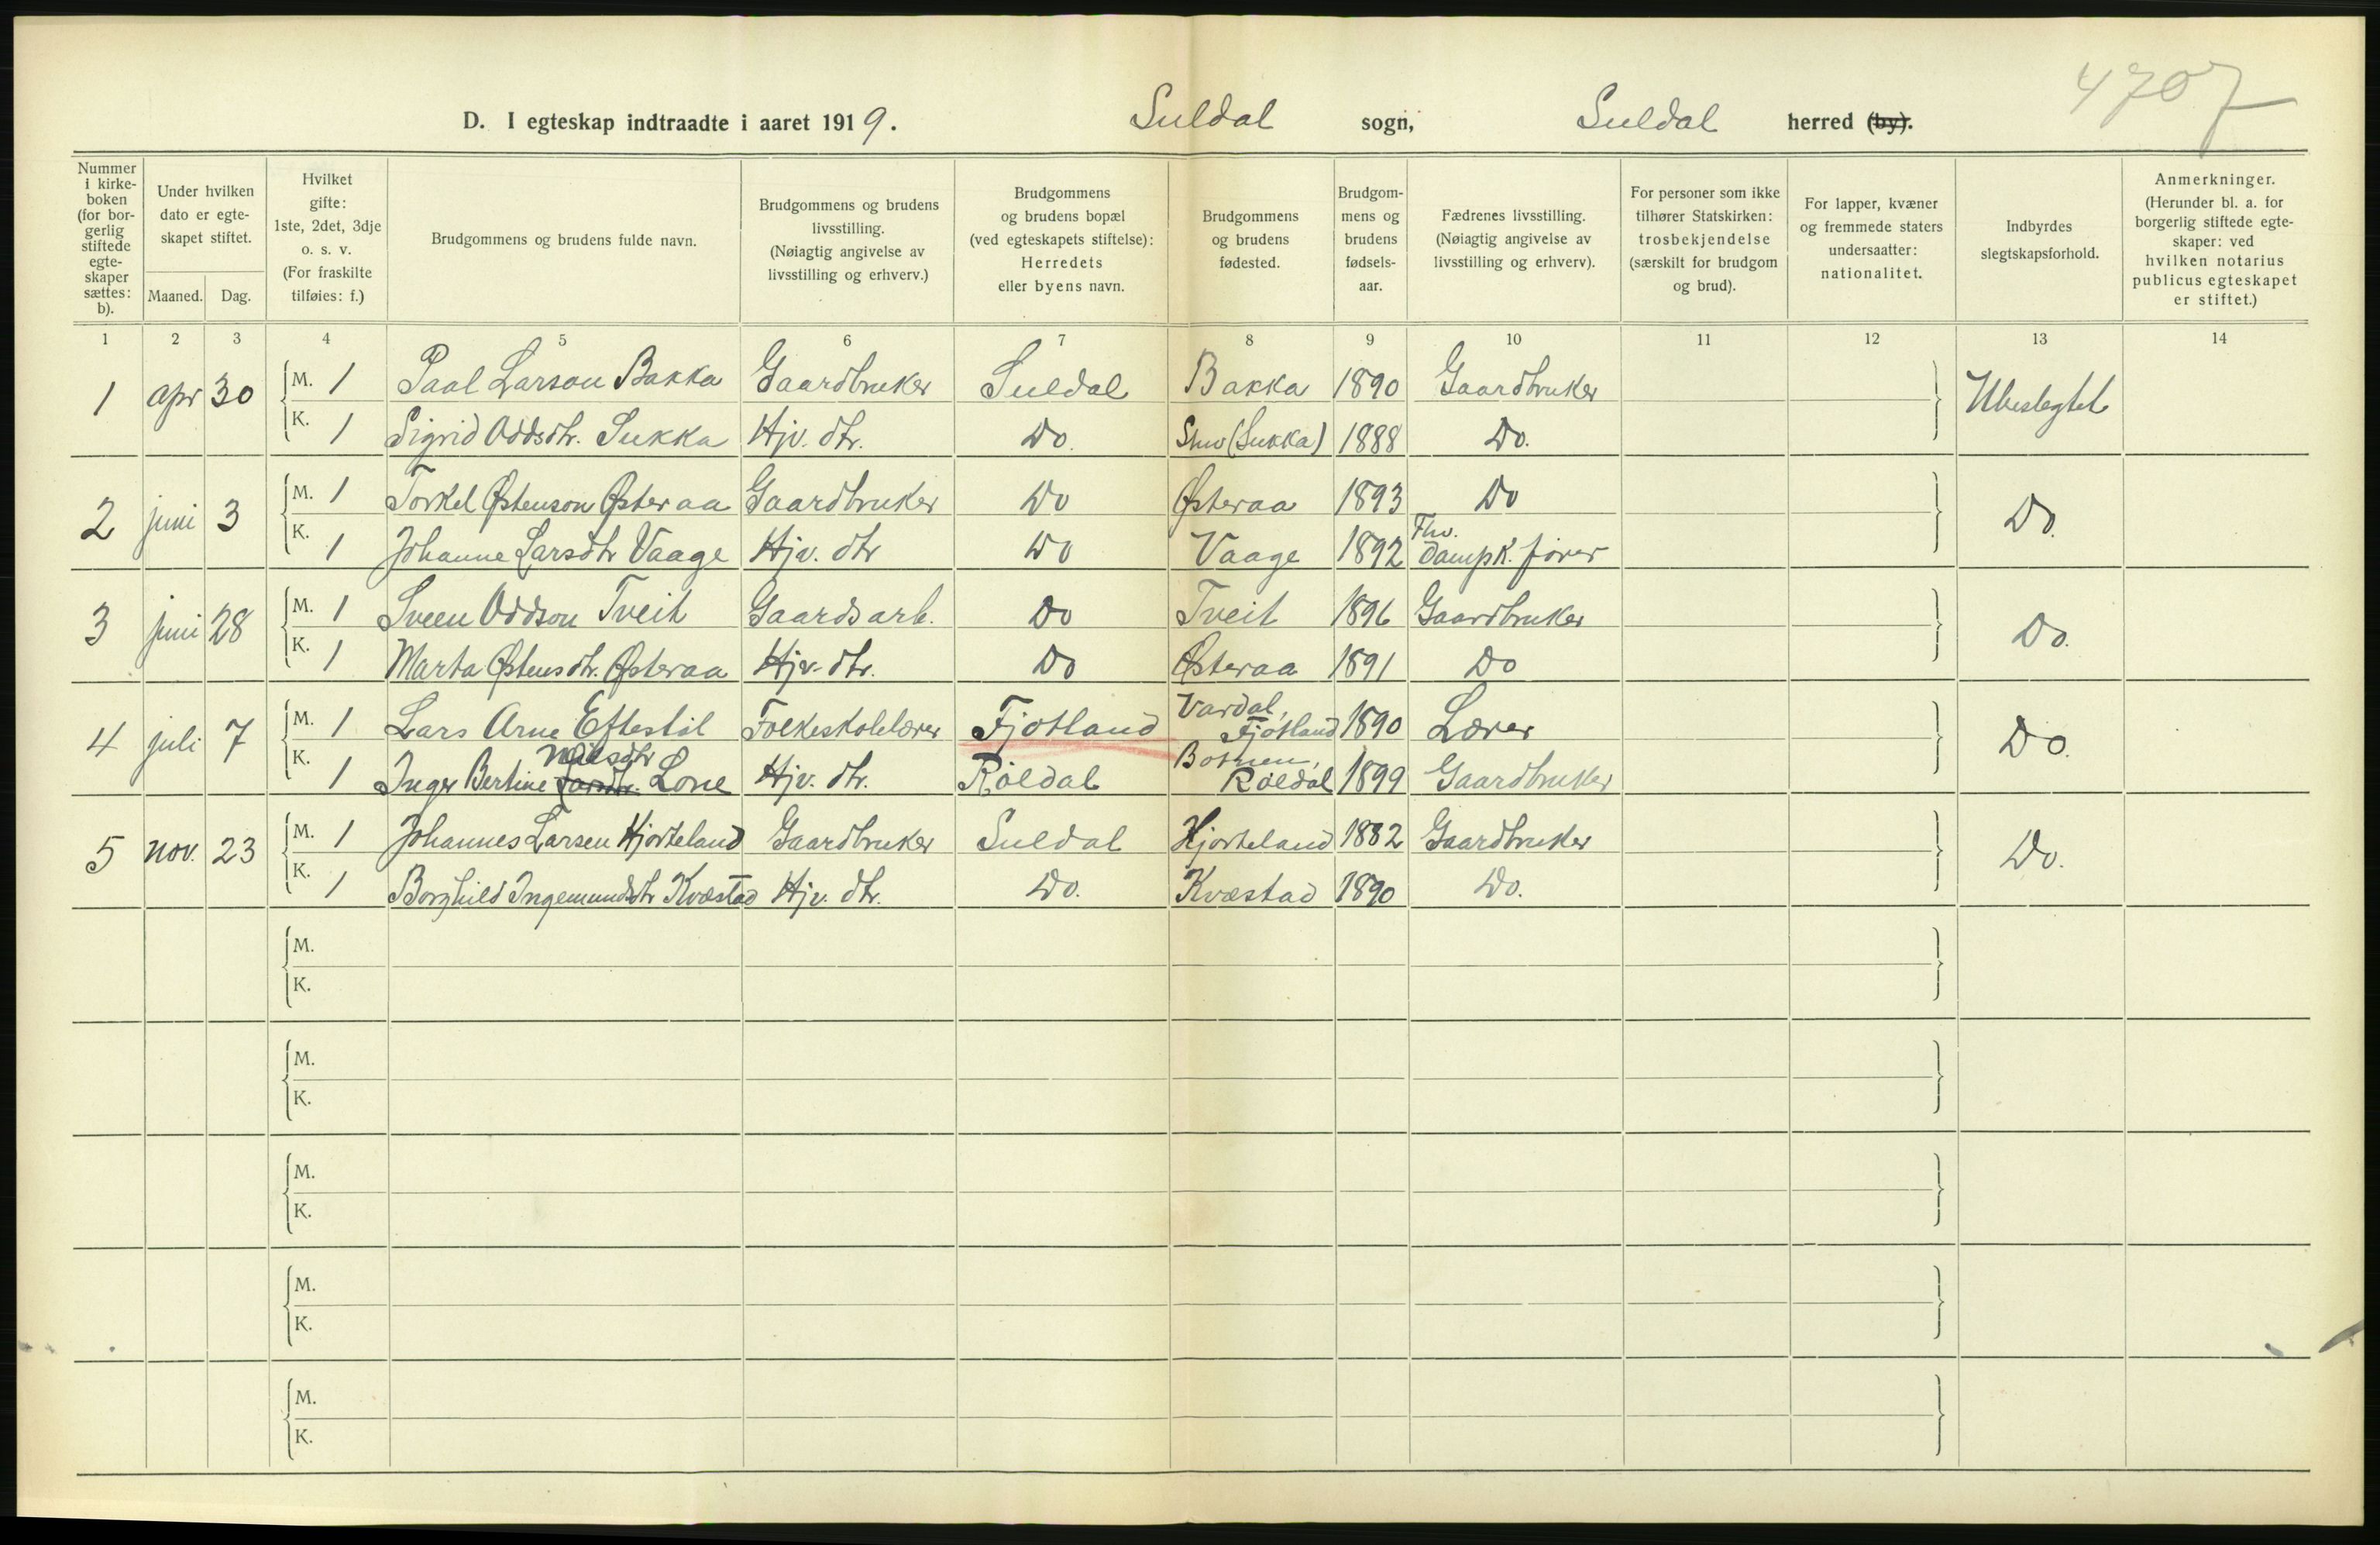 4707
D. I egteskap indtraadte i aaret 1919. Suldal sogn, Suldal herred (by).
Nummer i kirkeboken (for borgerlig stiftede egteskaper sættes: b).
Under hvilken dato er egteskapet stiftet.
Maaned. Dag.
Hvilket gifte: 1ste, 2det, 3dje o. s. v. (For fraskilte tilføies: f.)
Brudgommens og brudens fulde navn.
Brudgommens og brudens livsstilling. (Nøiagtig angivelse av livsstilling og erhverv.)
Brudgommens og brudens bopæl (ved egteskapets stiftelse): Herredets eller byens navn.
Brudgommens og brudens fødested.
Brudgommens og brudens fødselsaar.
Fædrenes livsstilling. (Nøiagtig angivelse av livsstilling og erhverv).
For personer som ikke tilhører Statskirken: trosbekjendelse (særskilt for brudgom og brud).
For lapper, kvæner og fremmede staters undersaatter: nationalitet.
Indbyrdes slegtskapsforhold.
Anmerkninger. (Herunder bl. a. for borgerlig stiftede egteskaper: ved hvilken notarius publicus egteskapet er stiftet.)
1 2 3 4 5 6 7 8 9 10 11 12 13 14
1 apr 30 M. 1 Paal Larson Bakka Gaardbruker Suldal Bakka 1890 Gaardbruker Ubeslegtet
K. 1 Sigrid Oddsdtr. Sukka Hjv. dtr. Do. (Sukka) 1888 Do.
2 juni 3 M. 1 Torkel Østenson Østeraa Gaardbruker Do Østeraa 1893 Do Do.
K. 1 Johanne Larsdtr Vaage Hjv. dtr Do Vaage 1892 Fhv. Dampsk. fører
3 juni 28 M. 1 Sveen Oddson Tveit Gaardsarb. Do Tveit 1896 Gaardbruker Do.
K. 1 Marta Østensdtr. Østeraa Hjv. dtr. Do Østeraa 1891 Do
4 juli 7 M. 1 Lars Arne Eftestøl Folkeskolelærer Fjotland Vardal, Fjotland 1890 Lærer Do.
K. 1 Inger Bertine Nilsdtr Lone Hjv. dtr. Røldal Botnen, Røldal 1899 Gaardbruker
5 nov. 23 M. 1 Johannes Larsen Hjorteland Gaardbruker Suldal Hjorteland 1882 Gaardbruker Do.
K. 1 Borghild Ingemundsdtr Kvæstad Hjv. dtr. Do. Kvæstad 1890 Do.
M.
K.
M.
K.
M.
K.
M.
K.
M.
K.